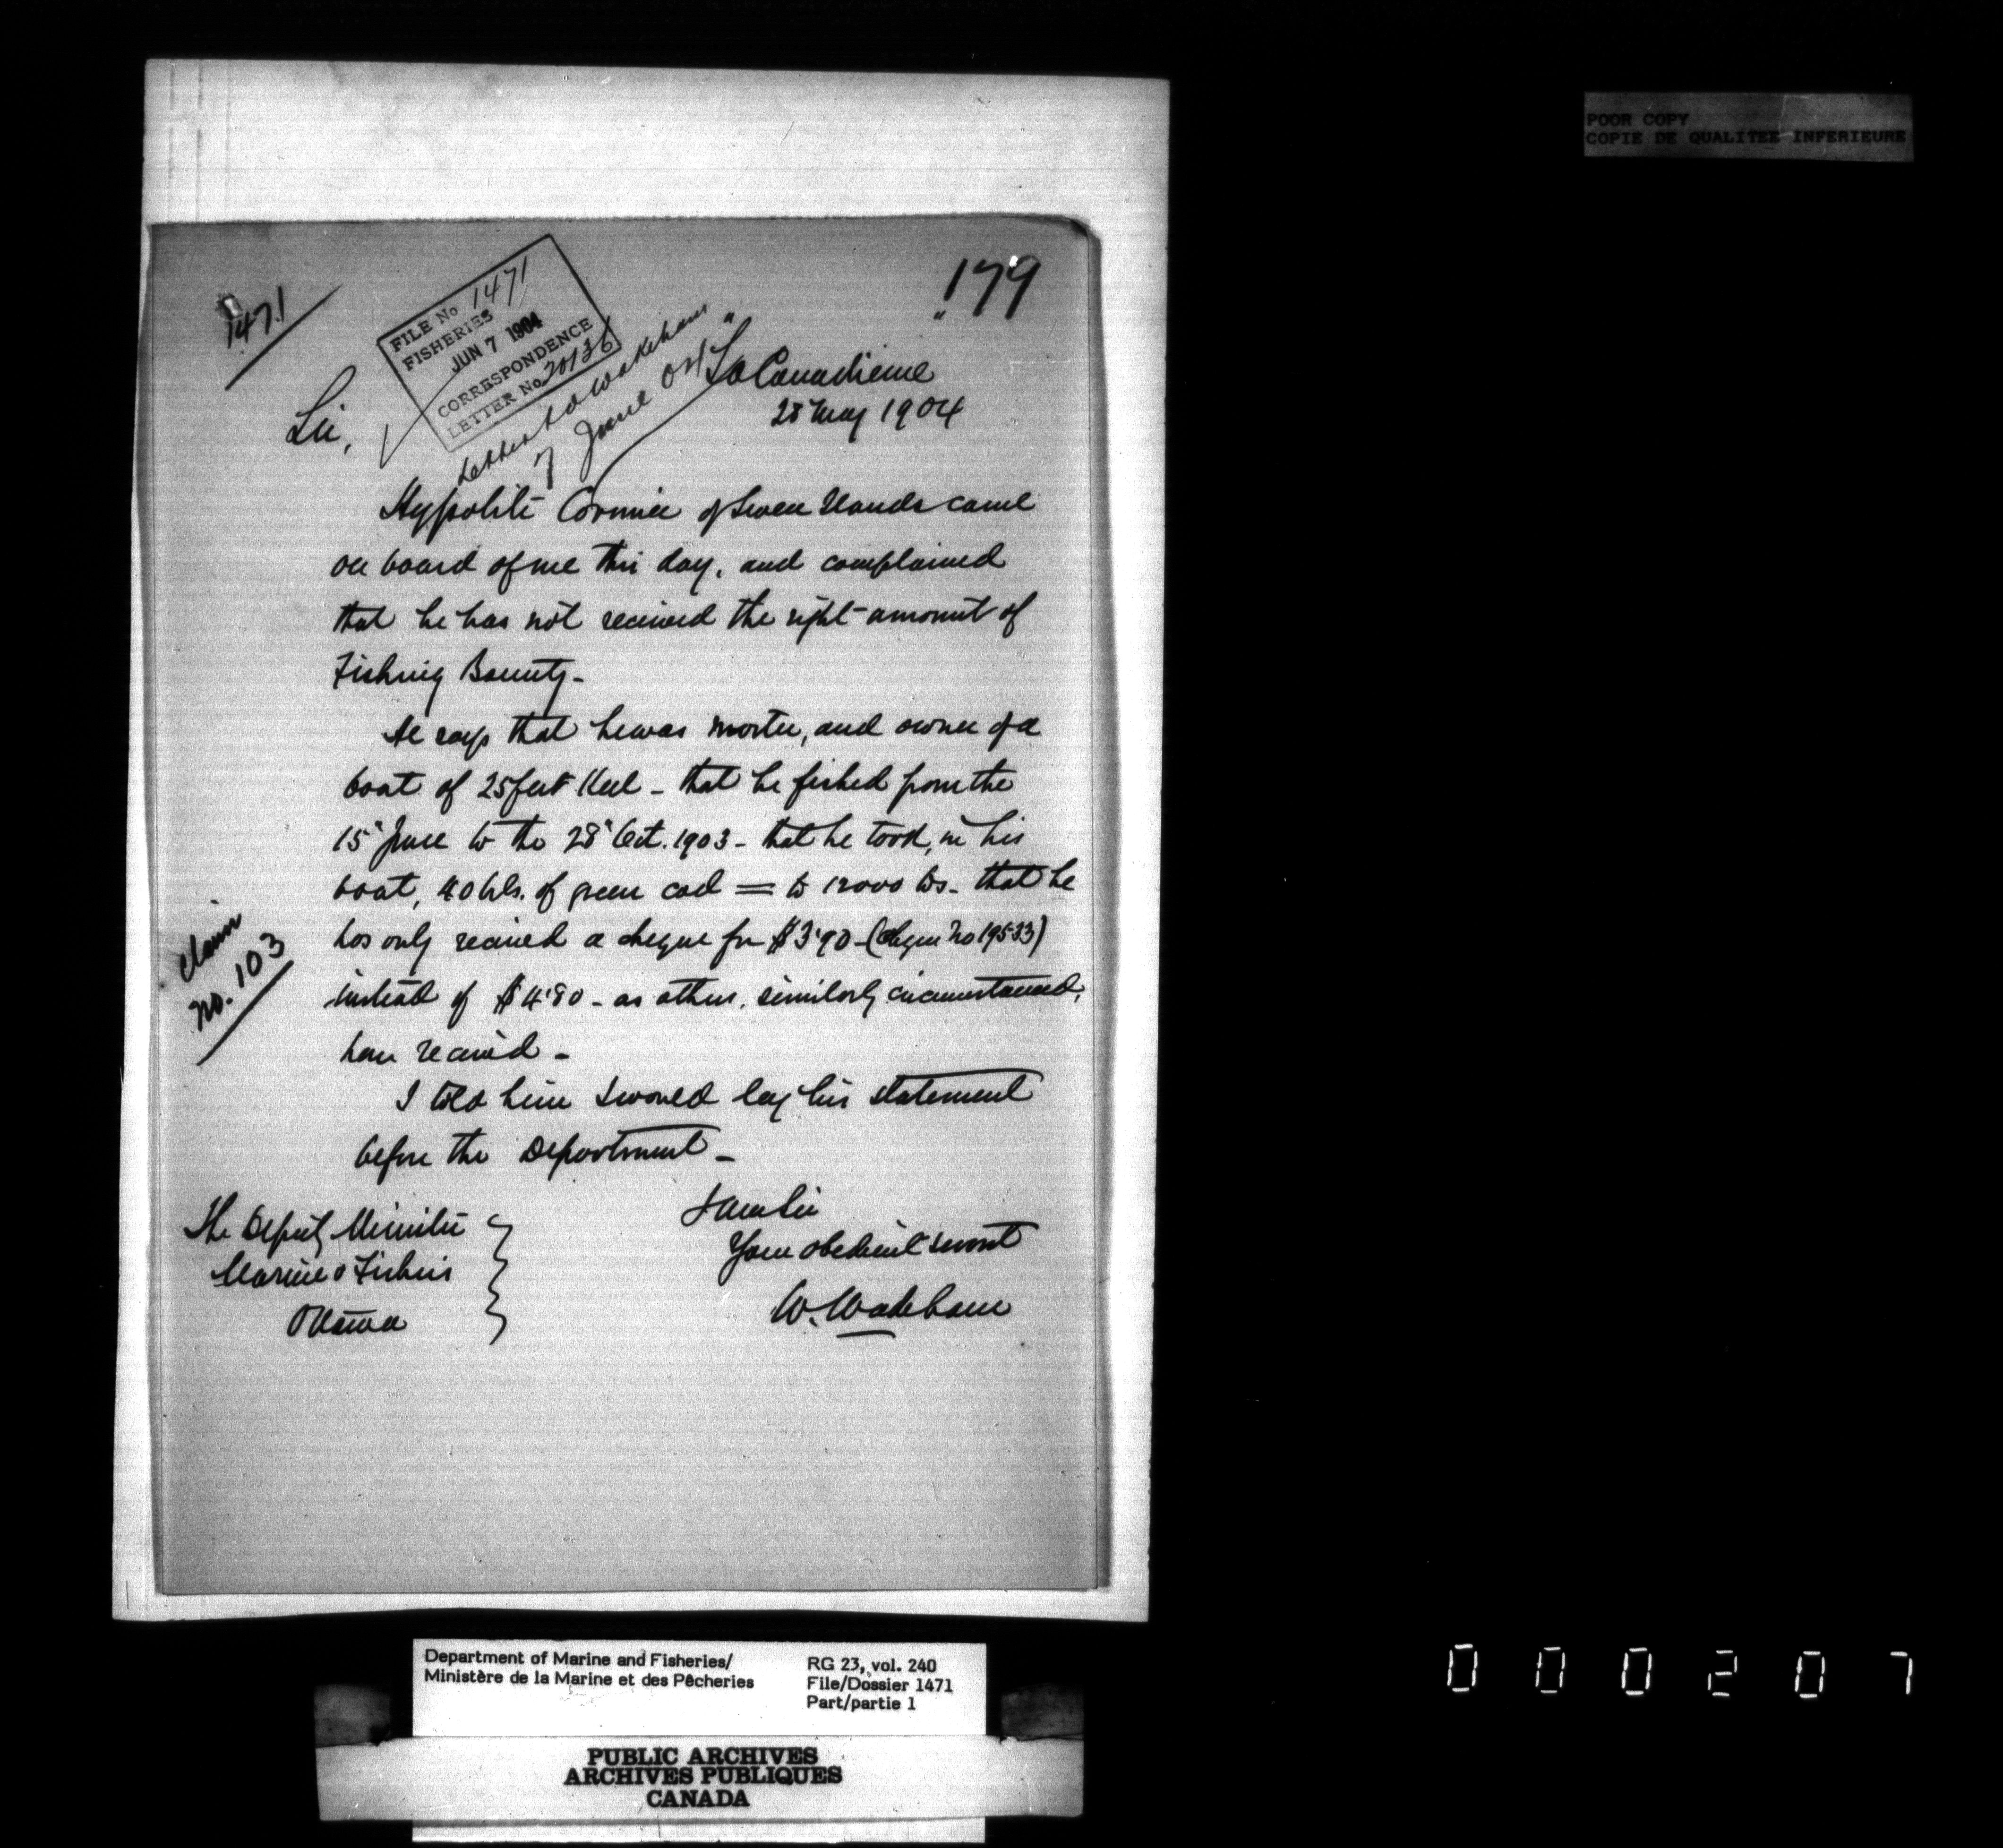 POOR COPY
COPIE DE QUALITEE INFERIEURE
1471
179
FILE No 1471
FISHERIES
JUN 7 1904
CORRESPONDENCE
LETTER No 20136
Letter to Wakeham
7 June 04
"La Canadienne"
28 May 1904
Sir,
Hyppolite Cormier of Seven Islands came
on board of me this day, and complained
that he has not received the right amount of
Fishing Bounty -
He says that he was master, and owner of a
boat of 25 feet Keel - that he fished from the
15" June to the 28" Oct. 1903 - that he took, in his
boat, 40 brls. of green cod = to 12000 lbs - that he
has only received a cheque for $3.90 - (cheque No 19533)
instead of $4.80 - as others, similarly circumstanced,
have received -
Claim
No. 103
I told him I would lay his statement
before the Department -
I am Sir
Your obedient servant
W. Wakeham
The Deputy Minister
Marine & Fisheries
Ottawa
Department of Marine and Fisheries/
Ministère de la Marine et des Pêcheries
RG 23, vol. 240
File/Dossier 1471
Part/partie 1
PUBLIC ARCHIVES
ARCHIVES PUBLIQUES
CANADA
000207